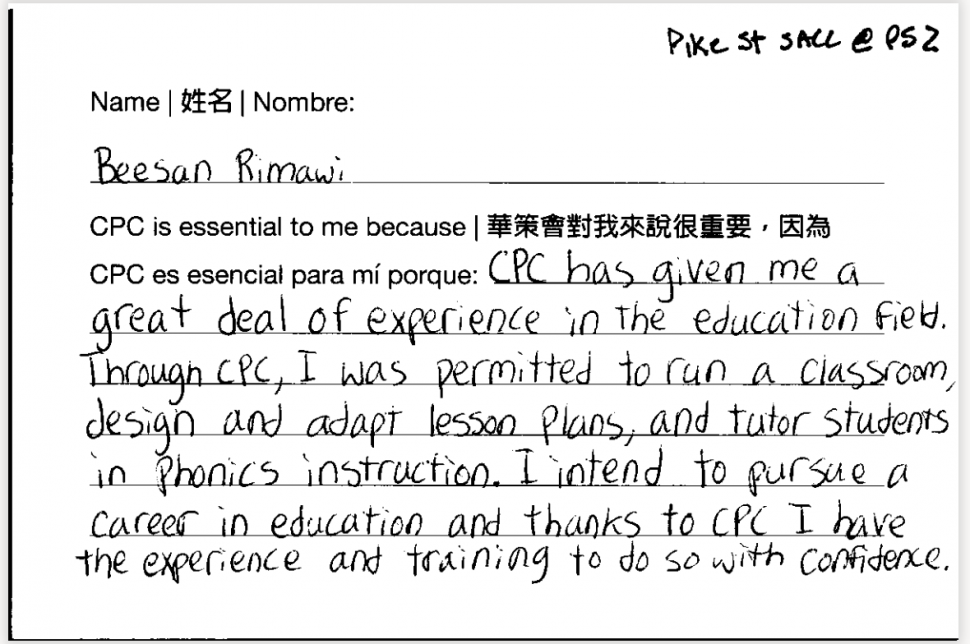 Pike St SACC @ PS2
Name | 姓名 | Nombre:
Beesan Rimawi
CPC is essential to me because | 華策會對我來說很重要，因為
CPC es esencial para mí porque: CPC has given me a
great deal of experience in the education field.
Through CPC, I was permitted to run a classroom,
design and adapt lesson plans, and tutor students
in phonics instruction. I intend to pursue a
career in education and thanks to CPC I have
the experience and training to do so with confidence.